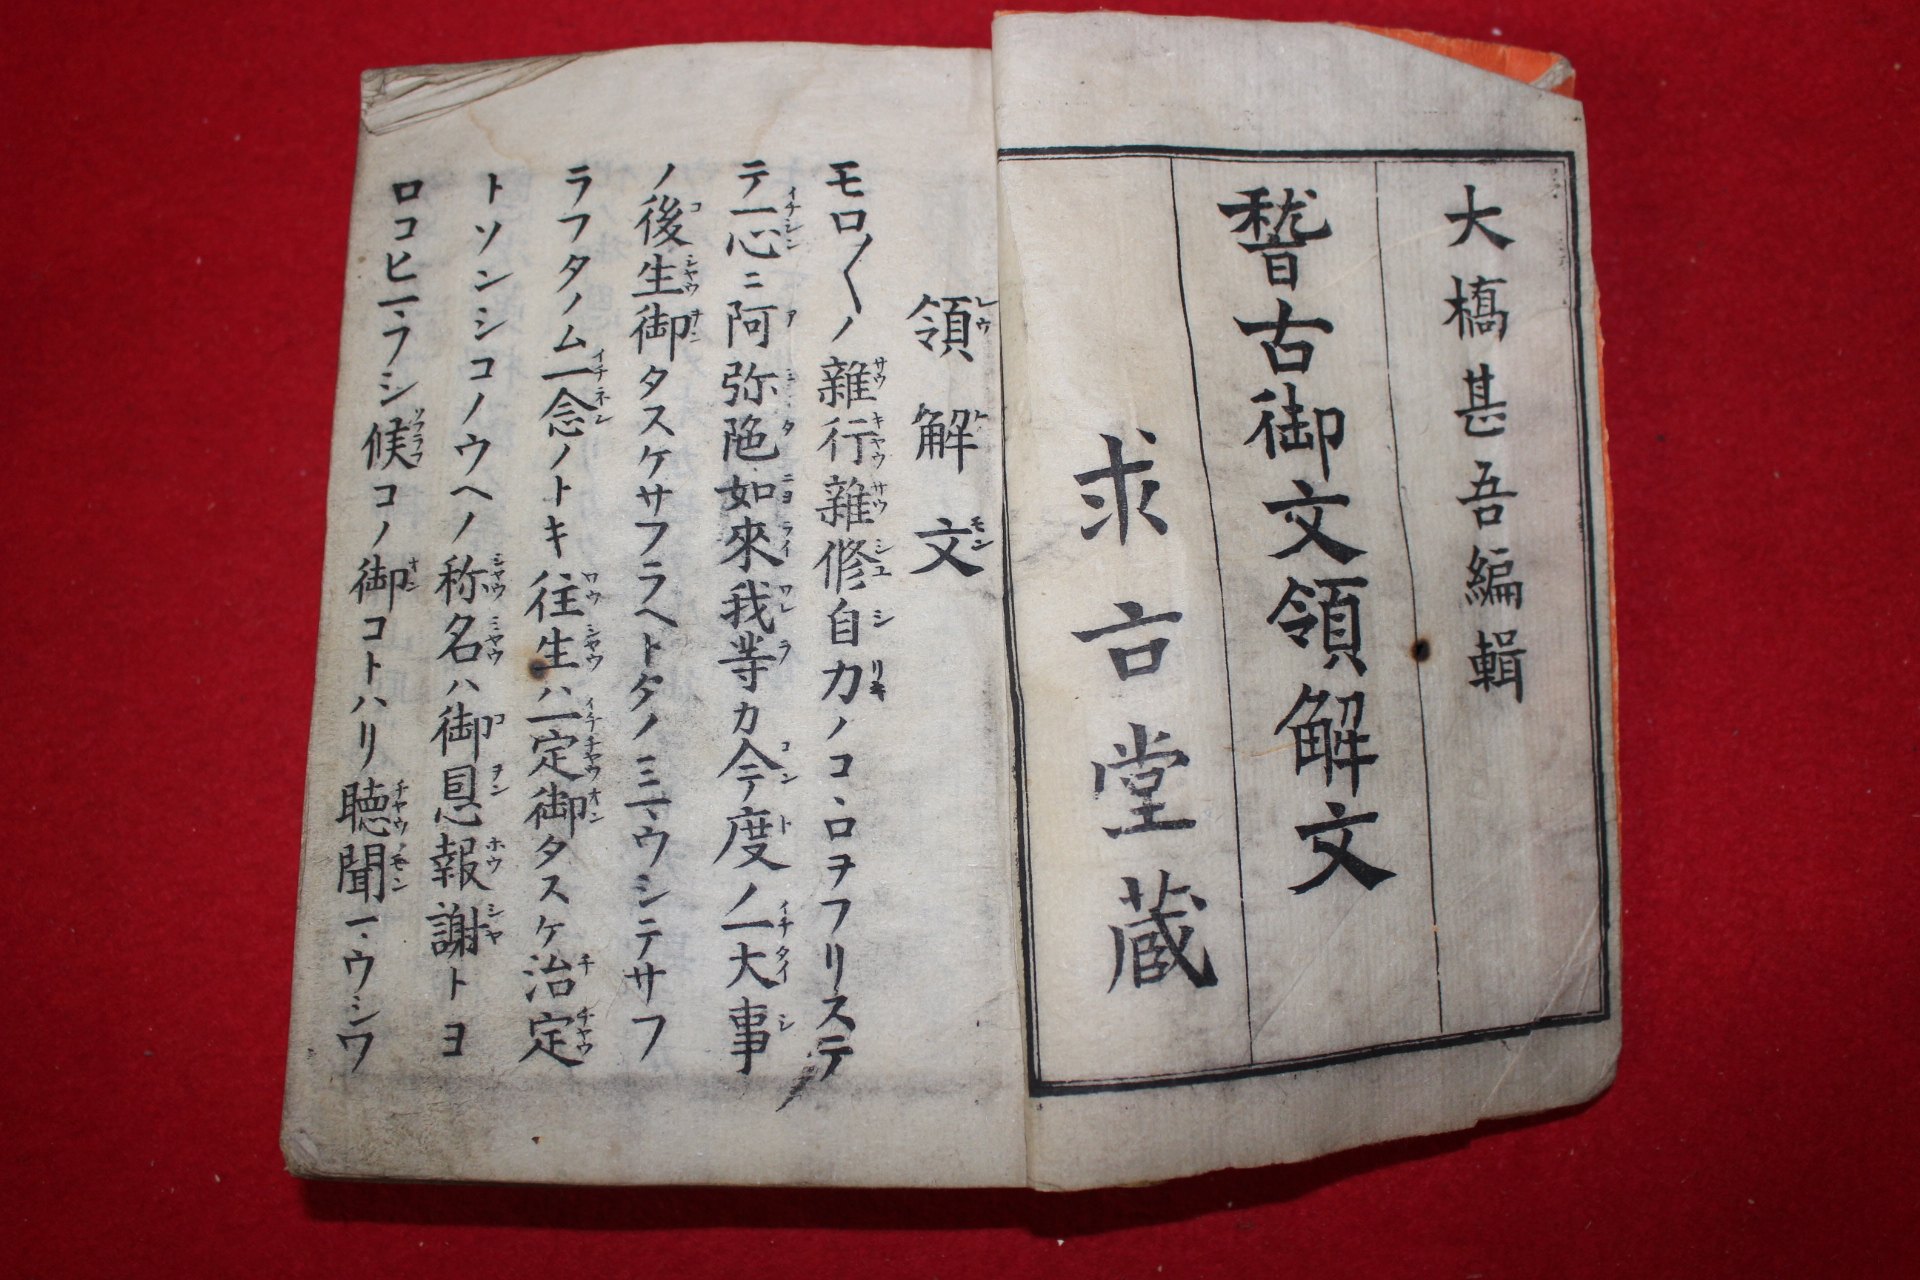 大橋甚吾編輯
稽古御文領解文
求古堂蔵
領解文
モロ〳〵ノ雜行雜修自力ノコヽロヲフリステ
テ一心ニ阿弥陁如來我等カ今度ノ一大事
ノ後生御タスケサフラヘトタノミマウシテサフ
ラフタノム一念ノトキ往生ハ一定御タスケ治定
トソンシコノウヘノ称名ハ御恩報謝トヨ
ロコヒマフシ候コノ御コトハリ聴聞マウシワ